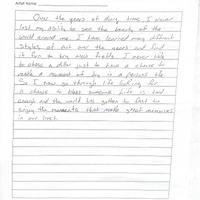 Artist Name:
Over the years of doing time, I never
lost my ability to see the beauty of the
world around me. I have learned many different
styles of art over the years and find
it fun to try new fields. I never like
to chase a dollar just to have a chance to
make a moment of joy in a persons life
So I now go through life looking for
a chance to bless someone. Life is hard
enough and the world has gotten to fast to
enjoy the moments that make great memories
in our lives.